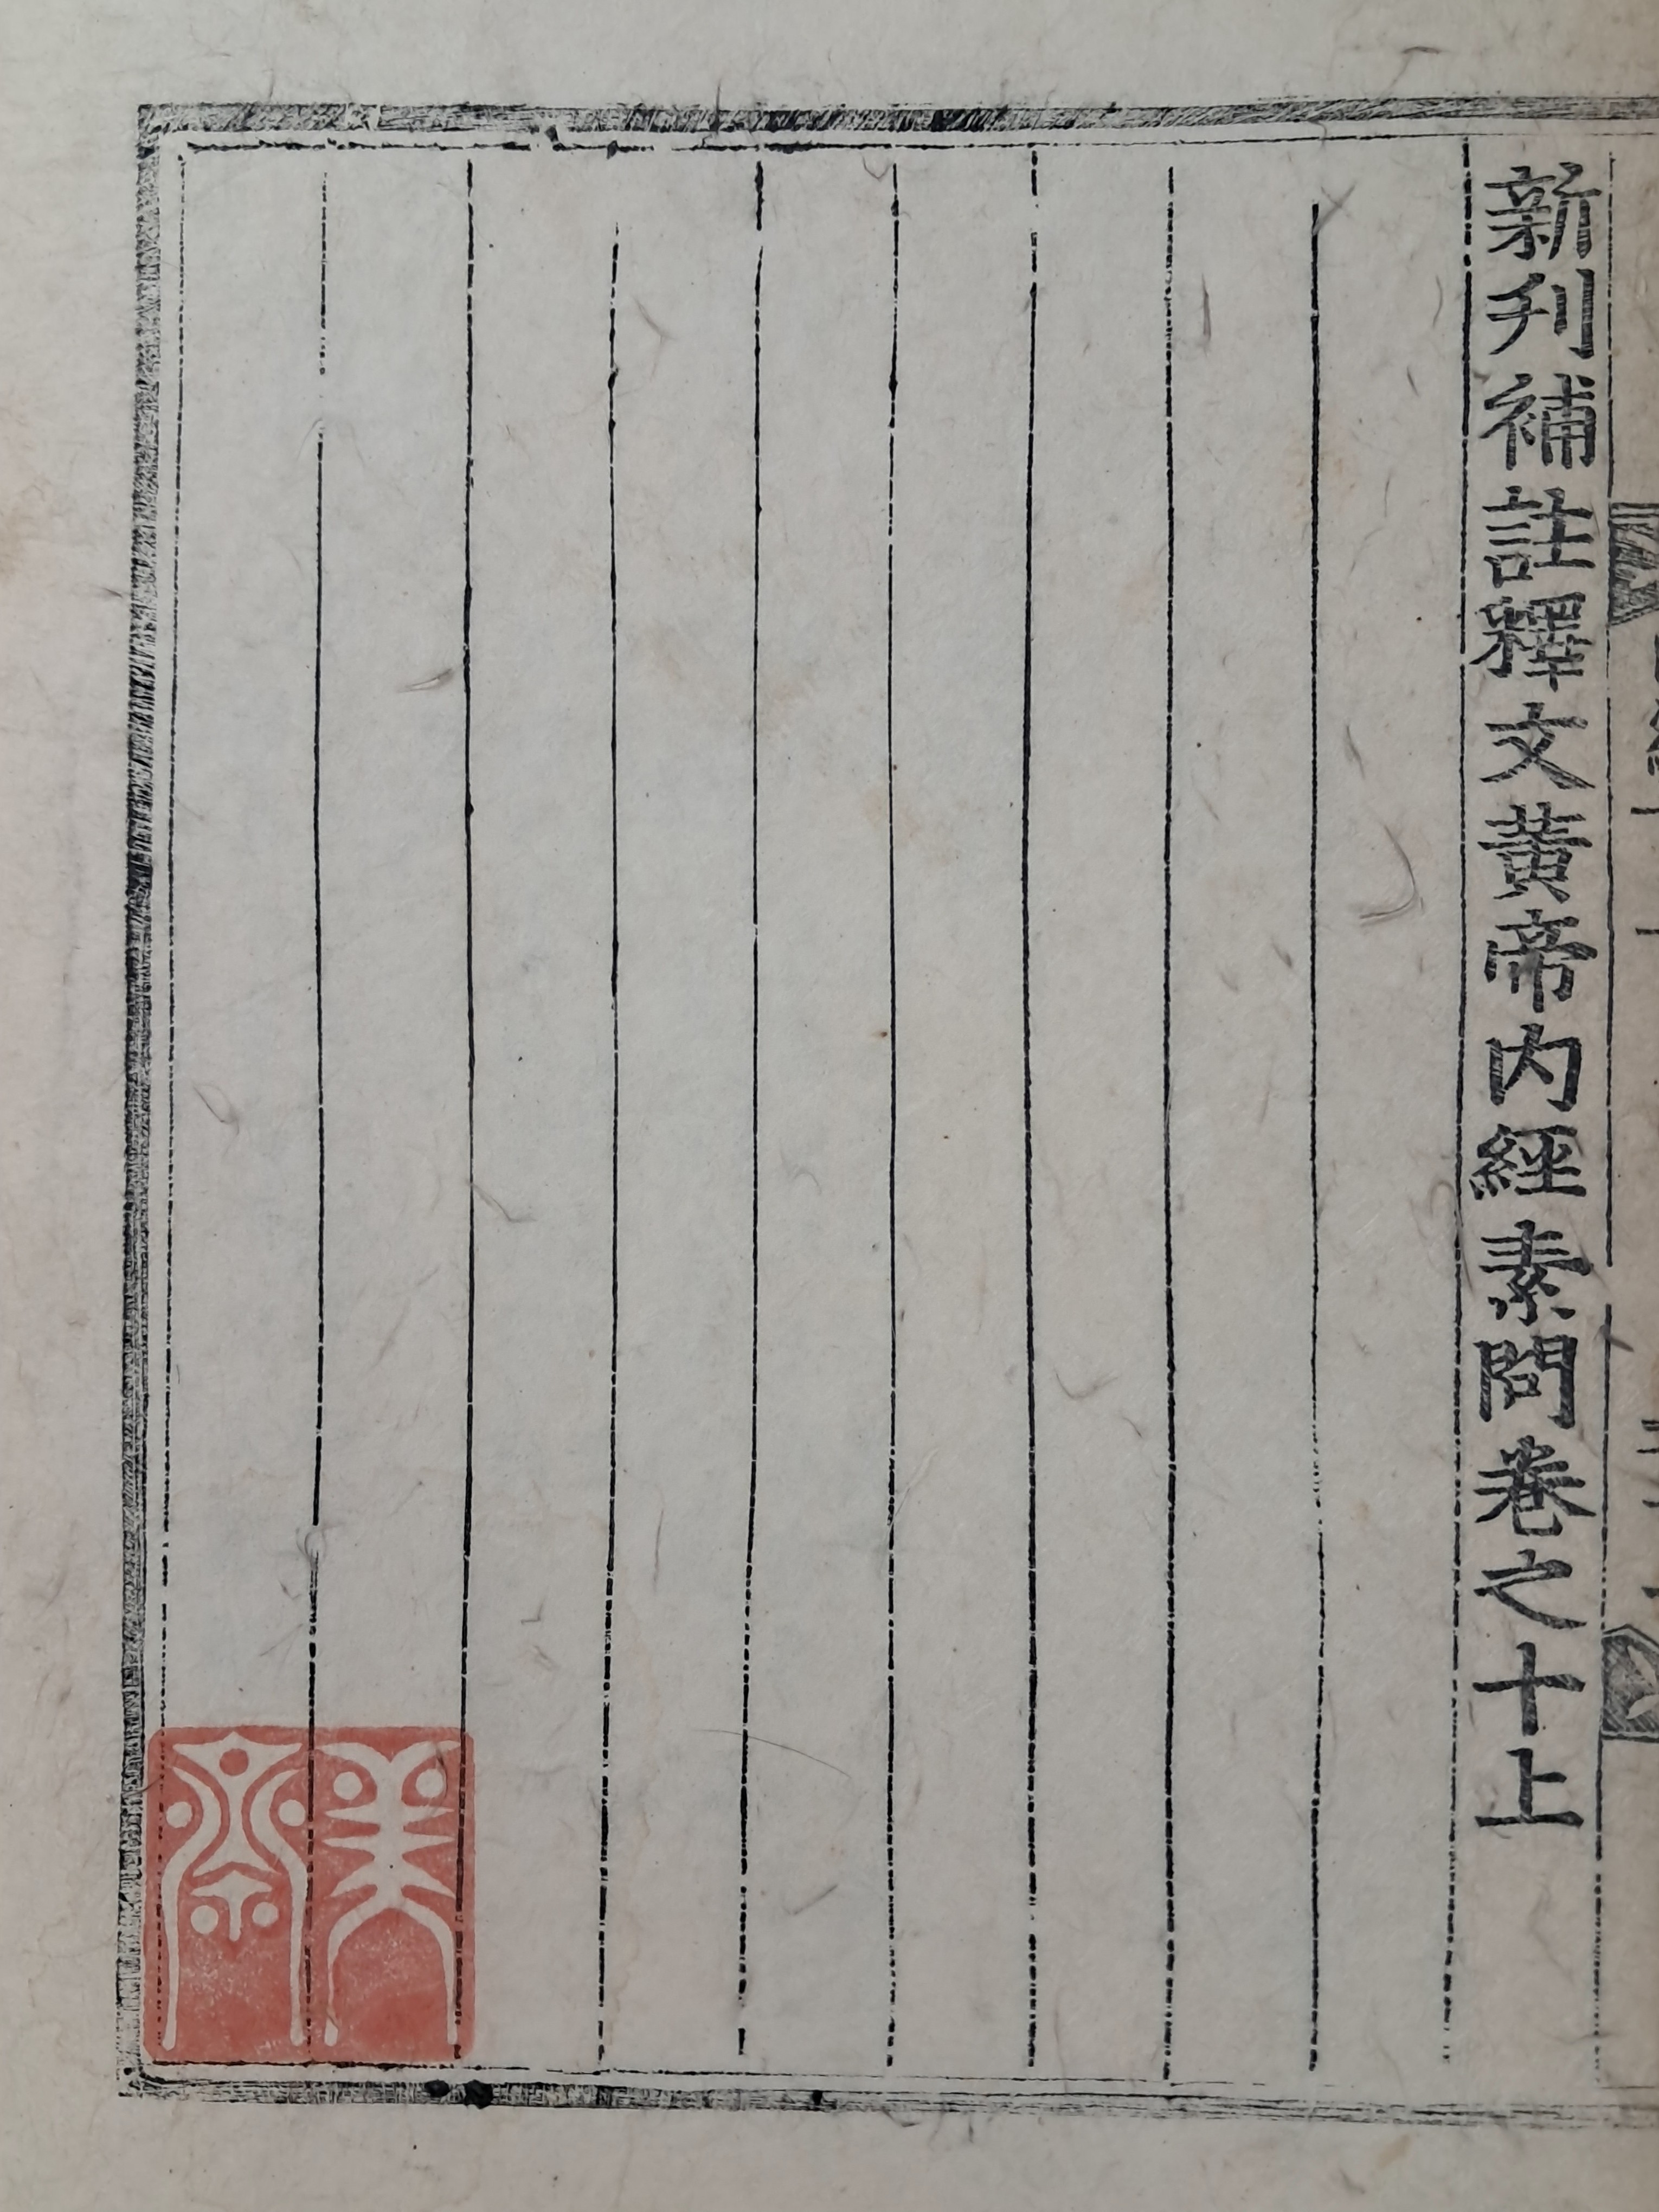 新刊補註釋文黃帝內經素問卷之十上